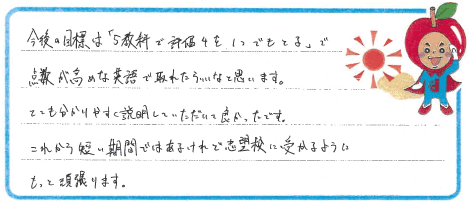 今後の目標は「5教科で評価4を1つでもとる」で
点数が高めな英語で取れたらいいなと思います。
とても分かりやすく説明していただいて良かったです。
これから短い期間ではあるけれど志望校に受かるように
もっと頑張ります。